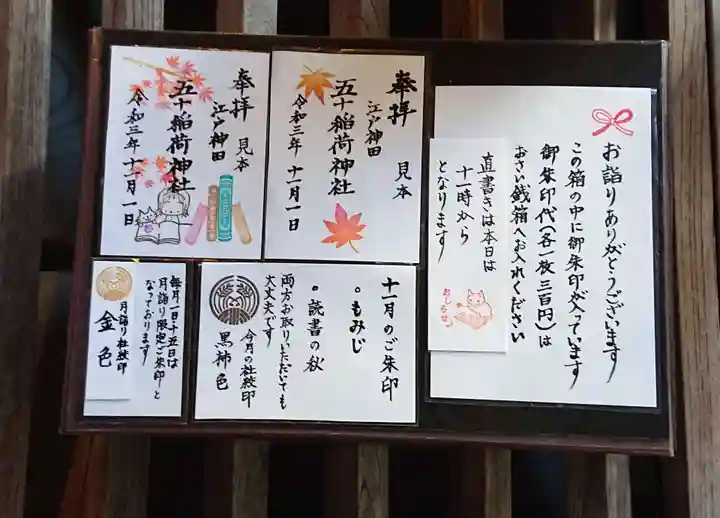 お詣りありがとうございます
この箱の中に御朱印が入っています
御朱印代(各一枚三百円)は
おさい銭箱へお入れください
直書きは本日は
十一時から
となります
おしらせ
奉拝
見本
江戸神田
五十稲荷神社
令和三年十一月一日
奉拝
見本
江戸神田
五十稲荷神社
令和三年十一月一日
十一月のご朱印
。もみじ
。読書の秋
両方お取りいただいても
大丈夫です
今月の社紋印
黒柿色
毎月一日十五日は
月詣り限定ご朱印と
なっております
月詣り社紋印
金色